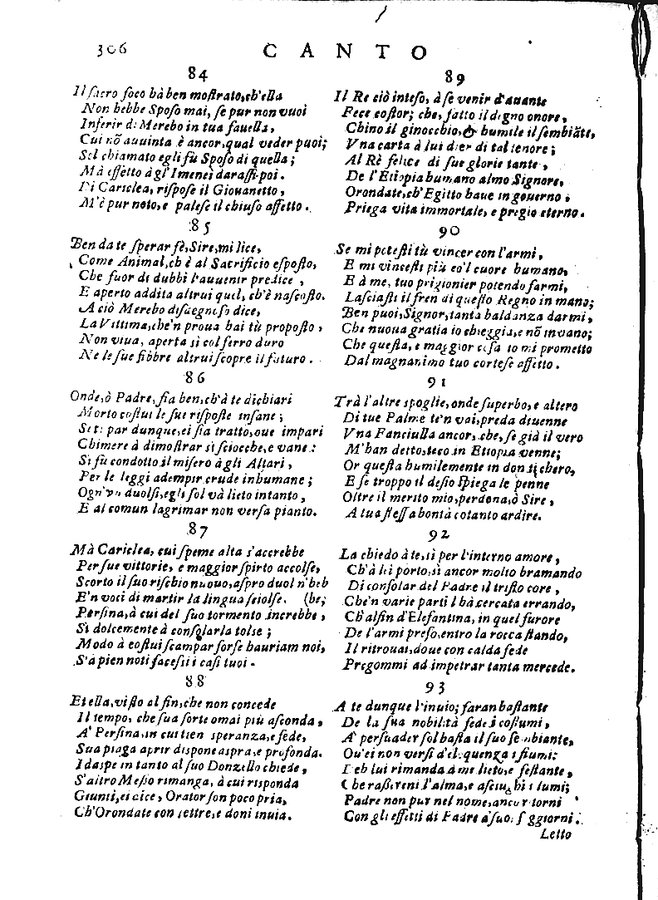 306 CANTO
84
Il sacro foco hà ben mostrato, ch'ella
Non hebbe Sposo mai, se pur non vuoi
Inferir di Merebo in tua fauella,
Cui nõ auuinta è ancor, qual veder puoi;
Sol chiamato egli fù Sposo di quella;
Mà effetto à gl'Imenei darassi poi.
Di Cariclea, rispose il Giouanetto,
M'è pur noto, e palese il chiuso affetto.
85
Ben da te sperar sè, Sire, mi lice,
Come Animal, ch'è al Sacrificio esposto,
Che fuor di dubbi l'auuenir predice,
E aperto addita altrui quel, ch'è nascosto.
A ciò Merebo disdegnoso dice,
La Vittima, che'n proua hai tù proposto,
Non viua, aperta sì col ferro duro
Ne le sue fibbre altrui scopre il futuro.
86
Onde, ò Padre, sia ben, ch'à te dichiari
Morto costui le sue risposte insane;
Sù: par dunque, ei sia tratto, oue impari
Chimere à dimostrar sì sciocche, e vane:
Si fù condotto il misero à gli Altari,
Per le leggi adempir crude inhumane;
Ogn'vn duolsi, egli sol và lieto intanto,
E al comun lagrimar non versa pianto.
87
Mà Cariclea, cui speme alta s'accrebbe
Per sue vittorie, e maggior spirto accolse,
Scorto il suo rischio nuouo, aspro duol n'heb
E'n voci di martir la lingua sciolse. (be;
Persina, à cui del suo tormento increbbe,
Sì dolcemente à consolarla tolse;
Modo à costui scampar forse hauriam noi,
S'à pien noti facessi i casi tuoi.
88
Et ella, visto al fin, che non concede
Il tempo, che sua sorte omai più asconda,
A' Persina, in cui tien speranza, e fede,
Sua piaga aprir dispone aspra, e profonda.
Idaspe in tanto al suo Donzello chiede,
S'altro Messo rimanga, à cui risponda
Giunti, ei dice, Orator son poco pria,
Ch'Orondate con lettre, e doni inuia.
89
Il Re ciò inteso, à se venir d'auante
Fece costor; che, fatto il degno onore,
Chino il ginocchio, & humile il sembiãte,
Vna carta à lui dier di tal tenore;
Al Rè felice di sue glorie tante,
De l'Etiopia humano almo Signore,
Orondate, ch'Egitto haue in gouerno,
Priega vita immortale, e pregio eterno.
90
Se mi potesti tù vincer con l'armi,
E mi vincesti più co'l cuore humano,
E à me, tuo prigionier potendo farmi,
Lasciasti il fren di questo Regno in mano;
Ben puoi, Signor, tanta baldanza darmi,
Che nuoua gratia io chieggia, e nõ inuano;
Che questa, e maggior cosa io mi prometto
Dal magnanimo tuo cortese affetto.
91
Trà l'altre spoglie, onde superbo, e altero
Di tue Palme te'n vai, preda diuenne
Vna Fanciulla ancor, che, se già il vero
M'han detto, teco in Etiopia venne;
Or questa humilemente in don ti chero,
E se troppo il desio spiega le penne
Oltre il merito mio, perdona, ò Sire,
A tua stessa bontà cotanto ardire.
92
La chiedo à te, sì per l'interno amore,
Ch'à lei porto, sì ancor molto bramando
Di consolar del Padre il tristo core,
Che'n varie parti l'hà cercata errando,
Ch'al fin d'Elefantina, in quel furore
De l'armi preso, entro la rocca stando,
Il ritrouai, doue con calda fede
Pregommi ad impetrar tanta mercede.
93
A te dunque l'inuio; faran bastante
De la sua nobiltà fede i costumi,
A' persuader sol basta il suo sembiante,
Ou'ei non versi d'eloquenza i fiumi:
Deh lui rimanda à me lieto, e festante,
Che rassereni l'alma, e asciughi i lumi;
Padre non pur nel nome, ancor torni
Con gli effetti di Padre à' suoi soggiorni.
Letto